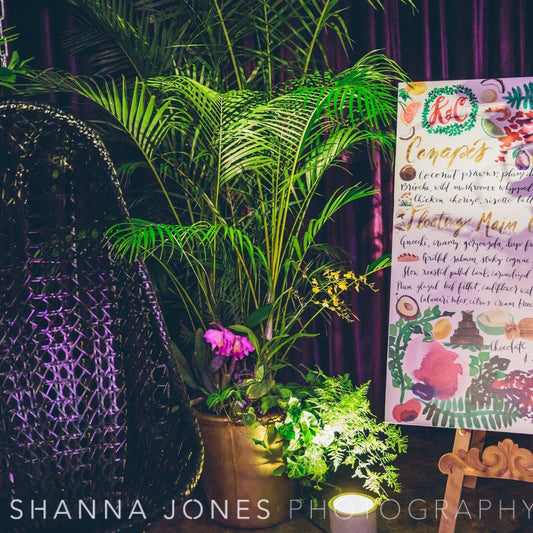 R&C
Canapés
Coconut prawns, plum
Brioche, wild mushrooms, whipped
Chicken chorizo, risotto
Floating Main
Gnocchi, creamy gorgonzola, deep
Grilled salmon, sticky cognac
Slow roasted pulled lamb, caramelized
Plum glazed beef fillet, cauliflower
Calamari tubes, citrus cream
chocolate
SHANNA JONES PHOTOGRAPHY